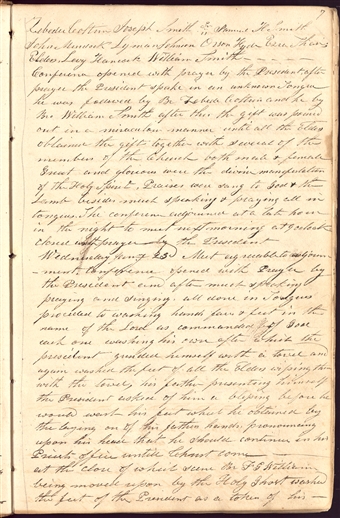 7
Zebedee Coltrin Joseph Smith Sr Samuel H. Smith
John Murdock Lyman Johnson Orson Hyde Ezra Thare
Elders, Levy Hancock William Smith
Conference opened with prayer by the President after
prayer the President spake in an unknown Tongue
he was followed by Br Zebedee Coltrin and he by
Bro William Smith after this the gift was poured
out in a miraculous manner until all the Elders
obtained the gift together with several of the
members of the Church both male & female
Great and glorious were the divine manifestation
of the Holy Spirit Praises were sang to God & the
Lamb besides much speaking & praying all in
tongues. The conference adjourned at a late hour
in the night to meet next morning at 9 oclock
closed prayer by the President
Wednesday 23d Meet agreeable to adjourn-
ment. Conference opened with Prayer by
the President and after much speaking
praying and singing. all done in Tongues
proceded to washing hands faces & feet in the
name of the Lord as commanded of God
each one washing his own after which the
president girded himself with a towel and
again washed the feet of all the Elders wiping them
with the towel, his father presenting himself
the President asked of him a blessing before he
would wash his feet which he obtained by
the laying on of his fathers hands, pronouncing
upon his head that he should continue in his
Priests office untill Christ come
at the close of which scene Br F G Williams
being moved upon by the Holy Ghost washed
the feet of the President as a token of his